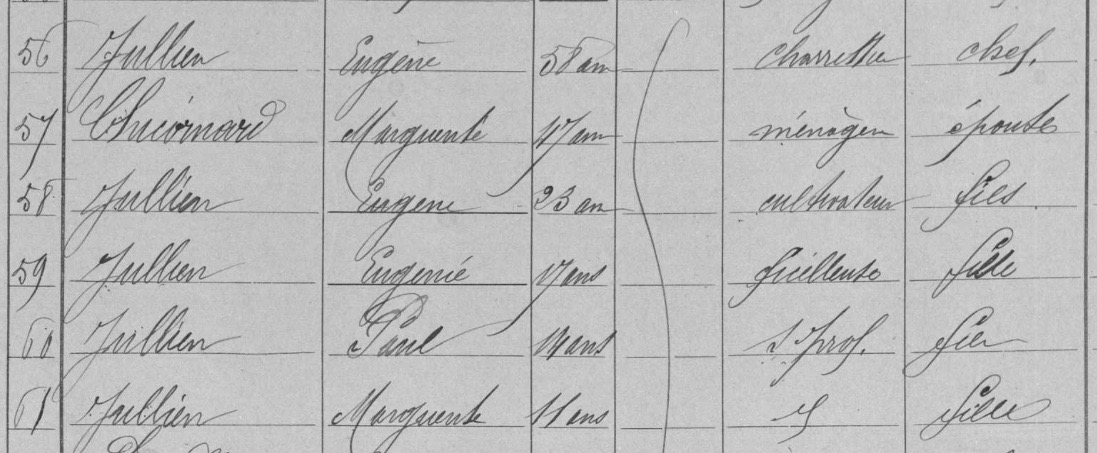 56 Jullien Eugène 58 ans charretier chef.
57 Chicornard Marguerite 47 ans ménagère épouse
58 Jullien Eugène 23 ans cultivateur fils
59 Jullien Eugénie 17 ans fille
60 Jullien Paul 14 ans s prof. fils
61 Jullien Marguerite 11 ans fille